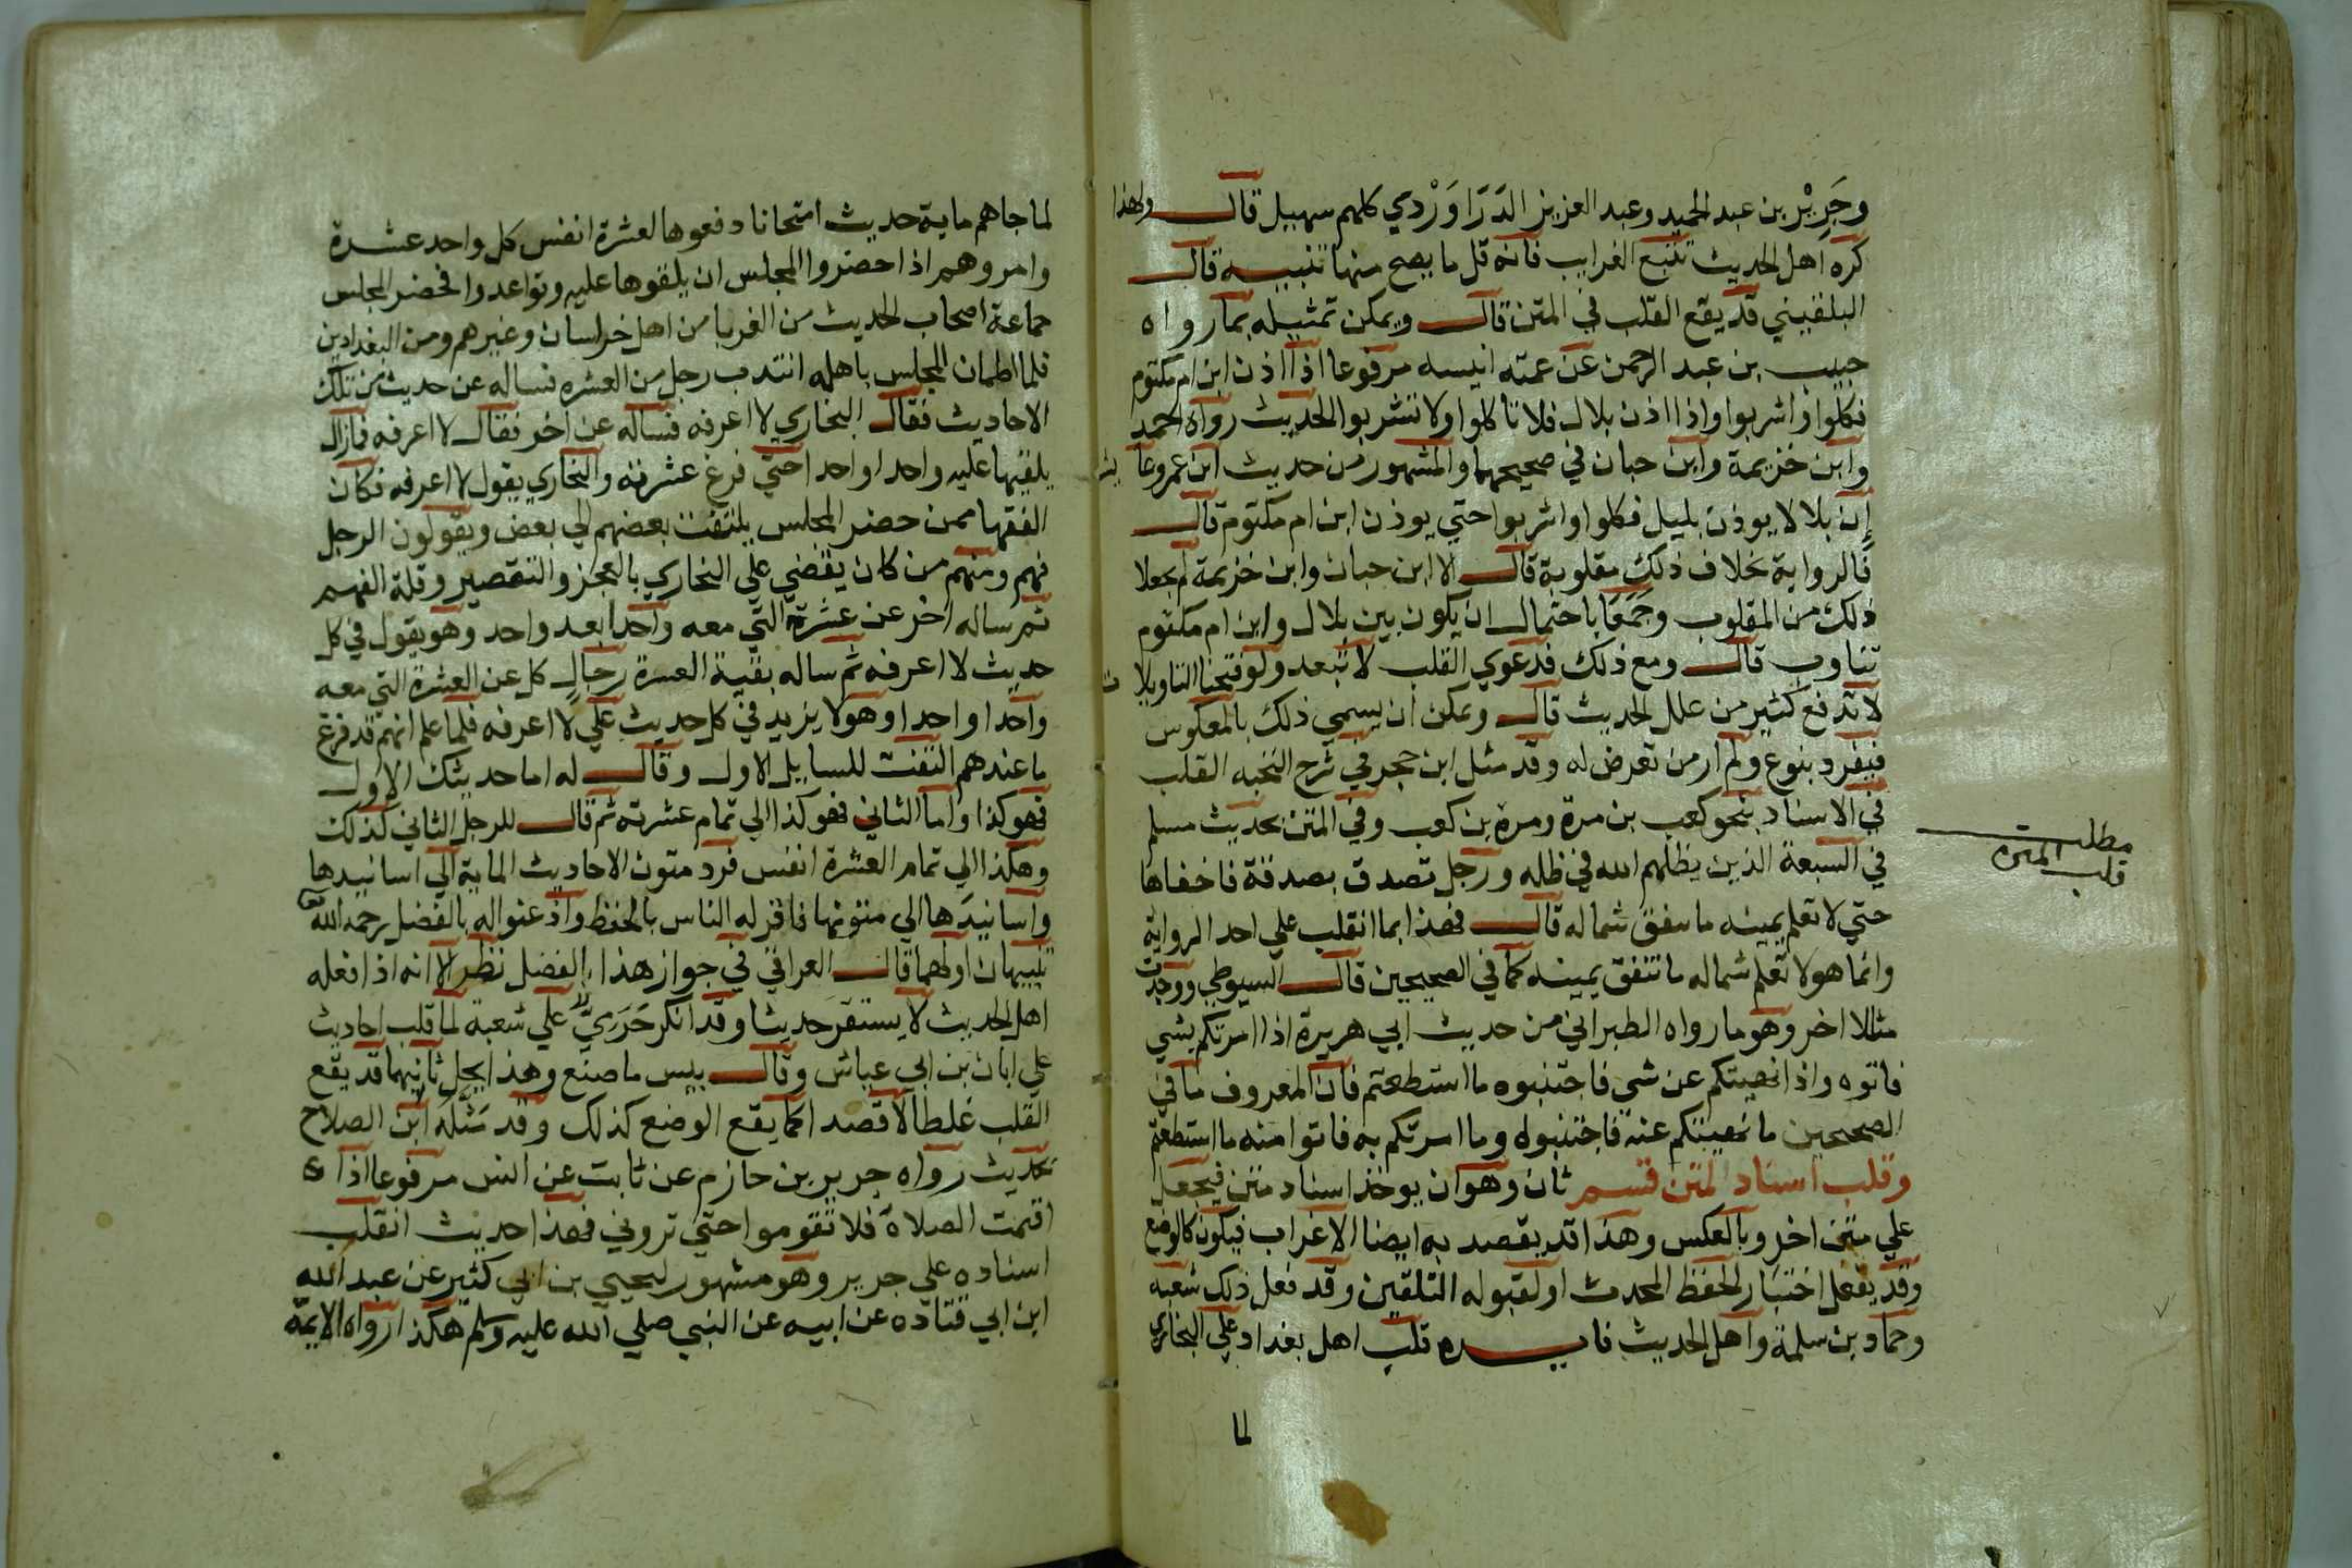 وجرير بن عبد الحميد وعبد العزيز الدراوردي كلهم سهيل قال ولهذا
كره اهل الحديث تتبع الغرايب فانه قل ما يصح منها تنبيه قال
البلقيني قد يقع القلب في المتن قال ويمكن تمثيله بما رواه
حبيب بن عبد الرحمن عن عمته انيسه مرفوعا اذا اذن ابن ام مكتوم
فكلوا واشربوا واذا اذن بلال فلا تاكلوا ولا تشربوا الحديث رواه احمد
وابن خزيمة وابن حبان في صحيحهما والمشهور من حديث ابن عمر وعايشه
إن بلالا يوذن بليل فكلوا واشربوا حتي يوذن ابن ام مكتوم قال
فالرواية بخلاف ذلك مقلوبة قال الا ابن حبان وابن خزيمة لم يجعلا
ذلك من المقلوب وجمعا باحتمال ان يكون بين بلال وابن ام مكتوم
تناوب قال ومع ذلك فدعوي القلب لا تبعد ولو فتحنا التاويلات
لاندفع كثير من علل الحديث قال ويمكن ان يسمي ذلك بالمعكوس
فينفرد بنوع ولم ار من تعرض له وقد مثل ابن حجر في شرح النخبه القلب
في الاسناد بنحو كعب بن مرة ومرة بن كعب وفي المتن بحديث مسلم
في السبعة الذين يظلهم الله في ظله ورجل تصدق بصدقة فاخفاها
حتي لا تعلم يمينه ما تنفق شماله قال فهذا بما انقلب علي احد الرواية
وانما هو لا تعلم شماله ما تنفق يمينه كما في الصحيحين قال السيوطي ووجدت
مثالا اخر وهو ما رواه الطبراني من حديث ابي هريرة اذا امرتكم بشي
فاتوه واذا نهيتكم عن شي فاجتنبوه ما استطعتم فان المعروف ما في
الصحيحين ما نهيتكم عنه فاجتنبوه وما امرتكم به فاتوا منه ما استطعتم
وقلب اسناد لمتن قسم ثان وهو ان يوخذ اسناد متن فيجعل
علي متن اخر وبالعكس وهذا قد يقصد به ايضا الاغراب فيكون كالوضع
وقد يفعل اختبارا لحفظ المحدث او لقبوله التلقين وقد فعل ذلك شعبه
وحماد بن سلمة واهل الحديث فايده قلب اهل بغداد علي البخاري
لما
مطلب
قلب المتن
لما جاهم ماية حديث امتحانا دفعوها لعشرة انفس كل واحد عشرة
وامروهم اذا حضروا المجلس ان يلقوها عليه وتواعدوا فحضر المجلس
جماعة اصحاب الحديث من الغربا من اهل خراسان وغيرهم ومن البغدادين
فلما اطمان المجلس باهله انتدب رجل من العشره فساله عن حديث من تلك
الاحاديث فقال البخاري لا اعرفه فساله عن اخر فقال لا اعرفه فازال
يلقيها عليه واحدا واحدا حتي فرغ عشرته والبخاري يقول لا اعرفه فكان
الفقها ممن حضر المجلس يلتفت بعضهم الي بعض ويقولون الرجل
فهم ومنهم من كان يقضي علي البخاري بالعجز والتقصير وقلة الفهم
ثم ساله اخر عن عشرة التي معه واحدا بعد واحد وهو يقول في كل
حديث لا اعرفه ثم ساله بقية العشرة رجال كل عن العشرة التي معه
واحدا واحدا وهو لا يزيد في كل حديث علي لا اعرفه فلما علم انهم قد فرغ
ما عندهم التفت للسايل الاول وقال له اما حديثك الاول
فهو كذا واما الثاني فهو كذا الي تمام عشرته ثم قال للرجل الثاني كذلك
وهكذا الي تمام العشرة انفس فرد متون الاحاديث الماية الي اسانيدها
واسانيدها الي متونها فاقر له الناس بالحفظ واذعنوا له بالفضل رحمه الله
تنبيهان اولهما قال العراقي في جواز هذا الفضل نظر الا انه اذا فعله
اهل الحديث لا يستقر حديثا وقد انكر حرمي علي شعبة لما قلب احاديث
علي ابان بن ابي عياش وقال بيس ما صنع وهذا يحل ثانيهما قد يقع
القلب غلطا لا قصدا كما يقع الوضع كذلك وقد مثله ابن الصلاح
بحديث رواه جرير بن حازم عن ثابت عن انس مرفوعا اذا
اقيمت الصلاة فلا تقوموا حتي تروني فهذا حديث انقلب
اسناده علي جرير وهو مشهور ليحيي بن ابي كثير عن عبد الله
ابن ابي قتاده عن ابيه عن النبي صلي الله عليه وسلم هكذا رواه الايمة